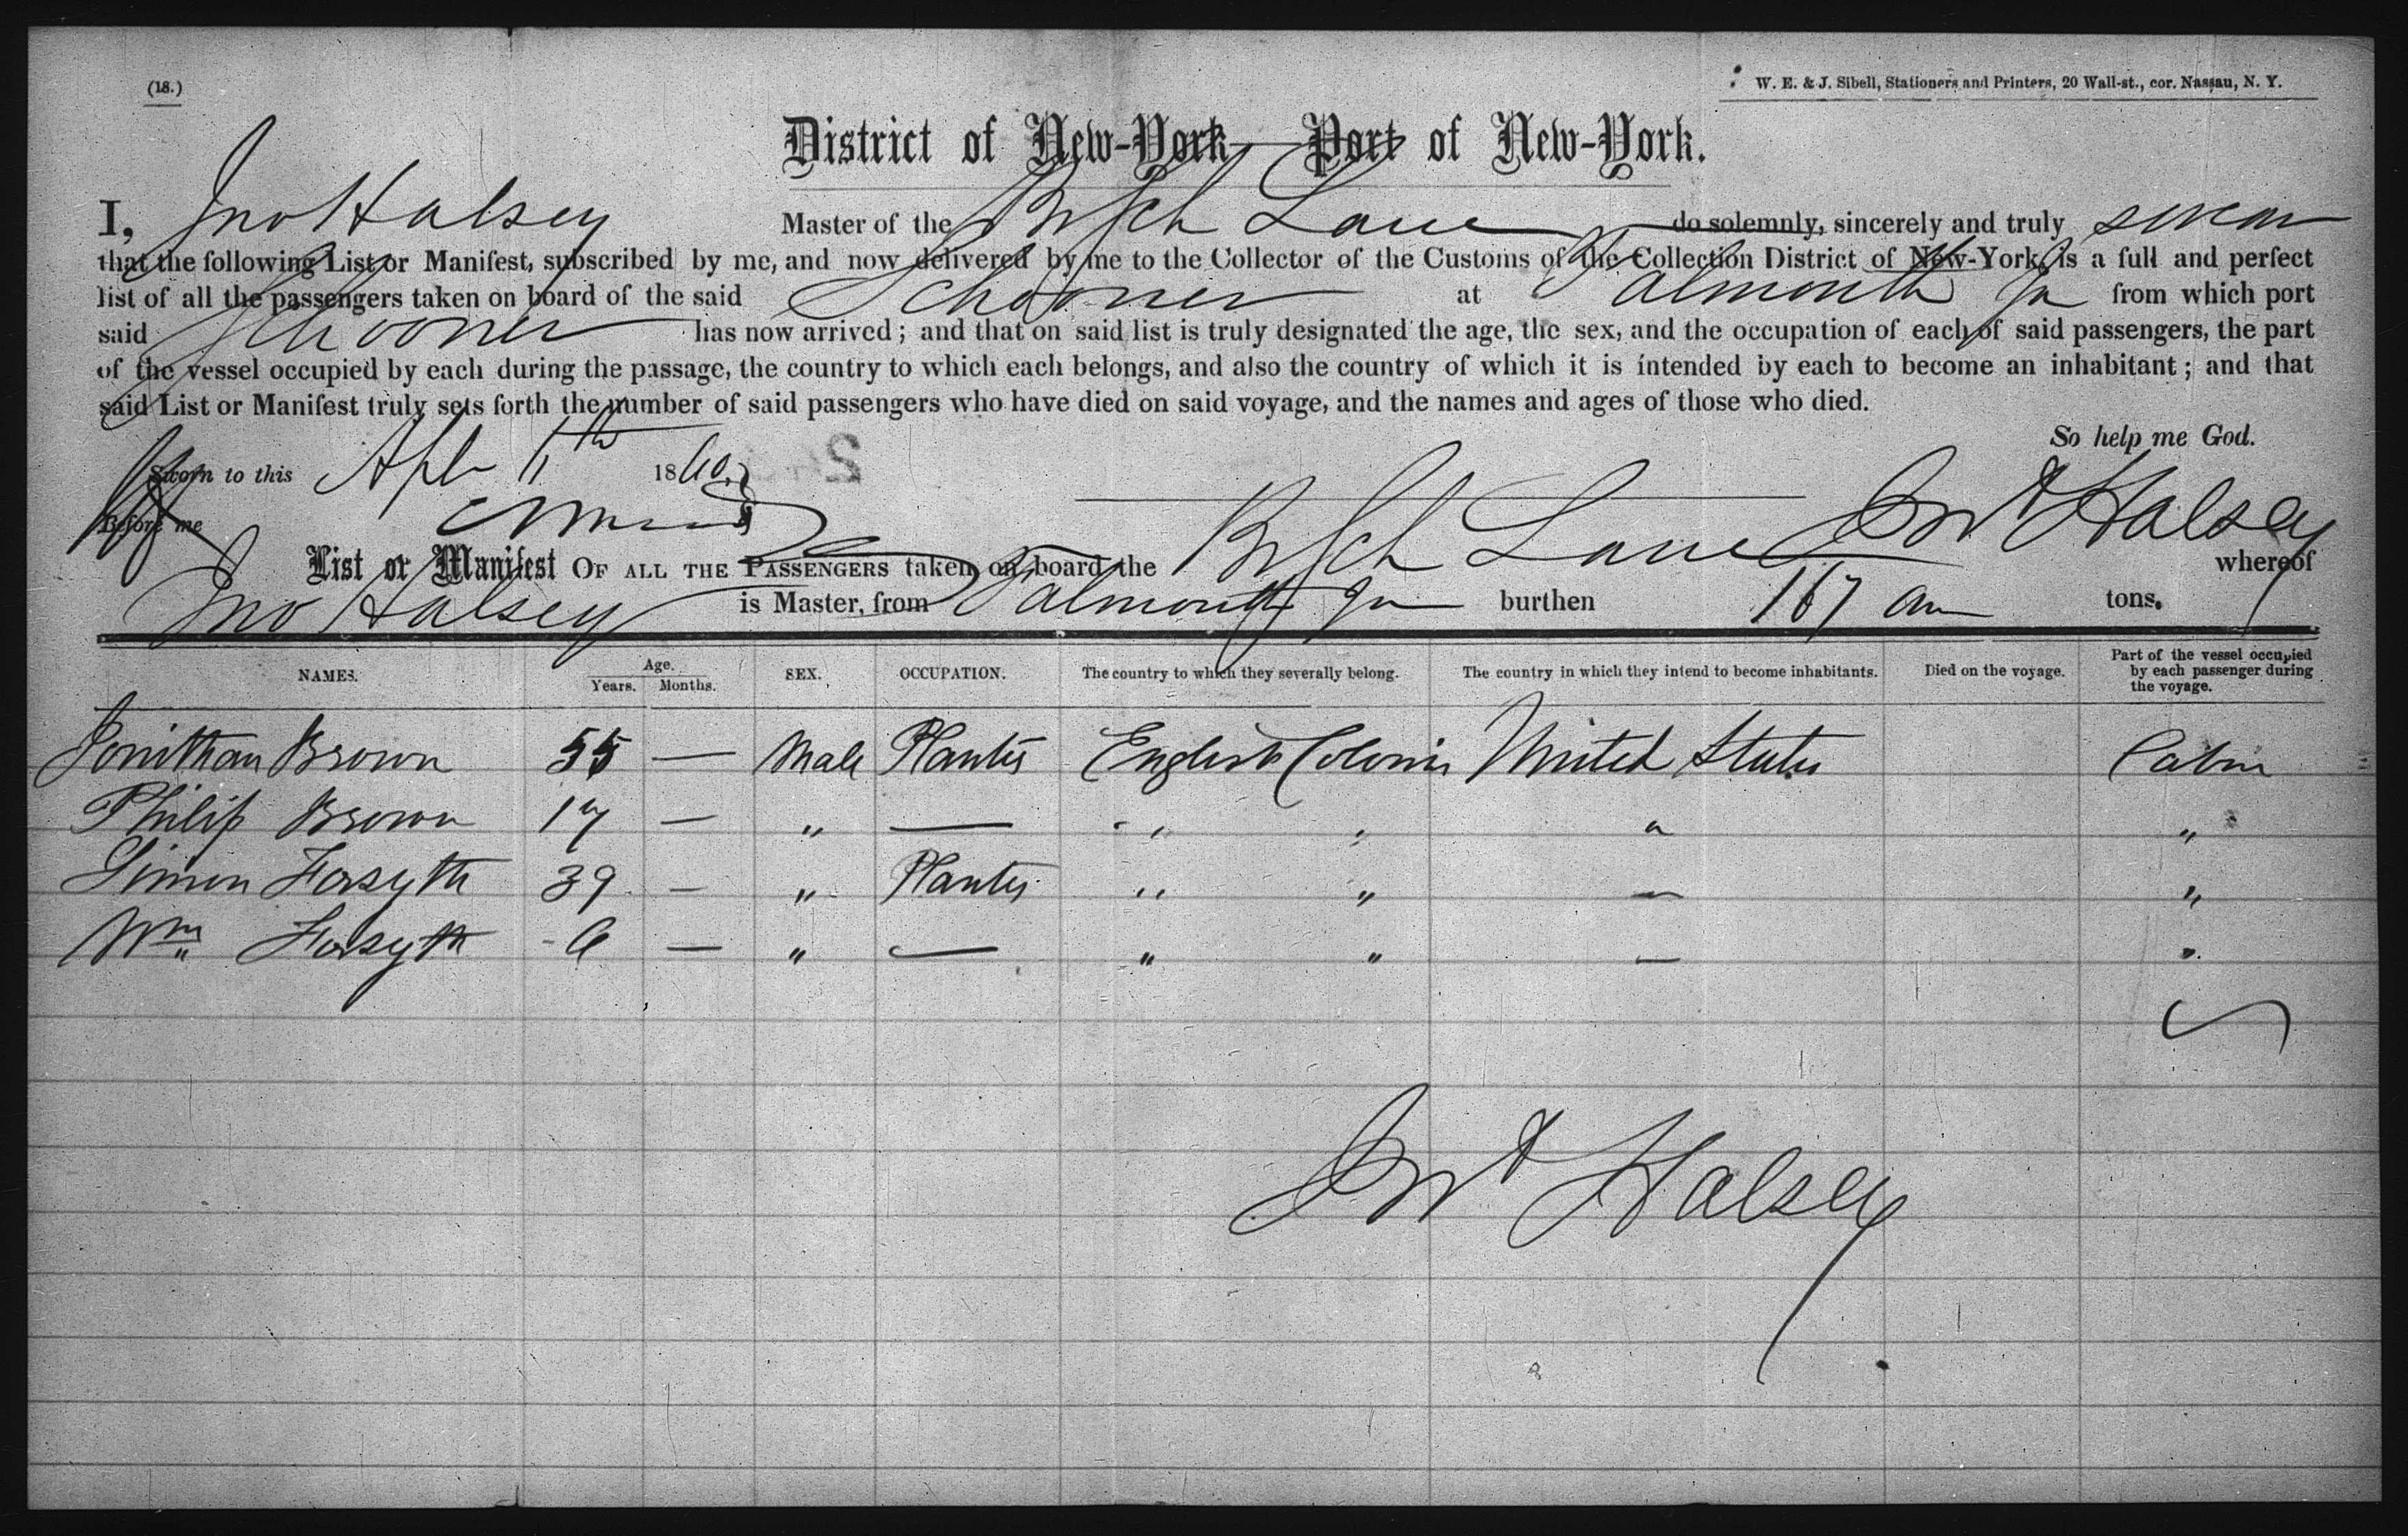 (18.)
W. E. & J. Sibell, Stationers and Printers, 20 Wall-st., cor. Nassau, N. Y.
District of New-York Port of New-York.
I, Jno Halsey Master of the Br Sch Laura do solemnly, sincerely and truly swear
that the following List or Manifest, subscribed by me, and now delivered by me to the Collector of the Customs of the Collection District of New-York, is a full and perfect
list of all the passengers taken on board of the said Schooner at Falmouth Ja from which port
said Schooner has now arrived; and that on said list is truly designated the age, the sex, and the occupation of each of said passengers, the part
of the vessel occupied by each during the passage, the country to which each belongs, and also the country of which it is intended by each to become an inhabitant; and that
said List or Manifest truly sets forth the number of said passengers who have died on said voyage, and the names and ages of those who died.
So help me God.
Sworn to this Apl 11th 1860
Before me
Jno Halsey
List or Manifest OF ALL THE PASSENGERS taken on board the Br Sch whereof
Jno Halsey is Master, from Falmouth Ja burthen 167 tons.
NAMES. Age. Years. Months. SEX. OCCUPATION. The country to which they severally belong. The country in which they intend to become inhabitants. Died on the voyage. Part of the vessel occupied by each passenger during the voyage.
Jonithan Brown 55 — Male Planter English Colonies United States Cabin
Philip Brown 17 — " — " " " "
Simon Forsyth 39 — " Planter " " — "
Wm Forsyth 6 — " — " " — "
Jno Halsey